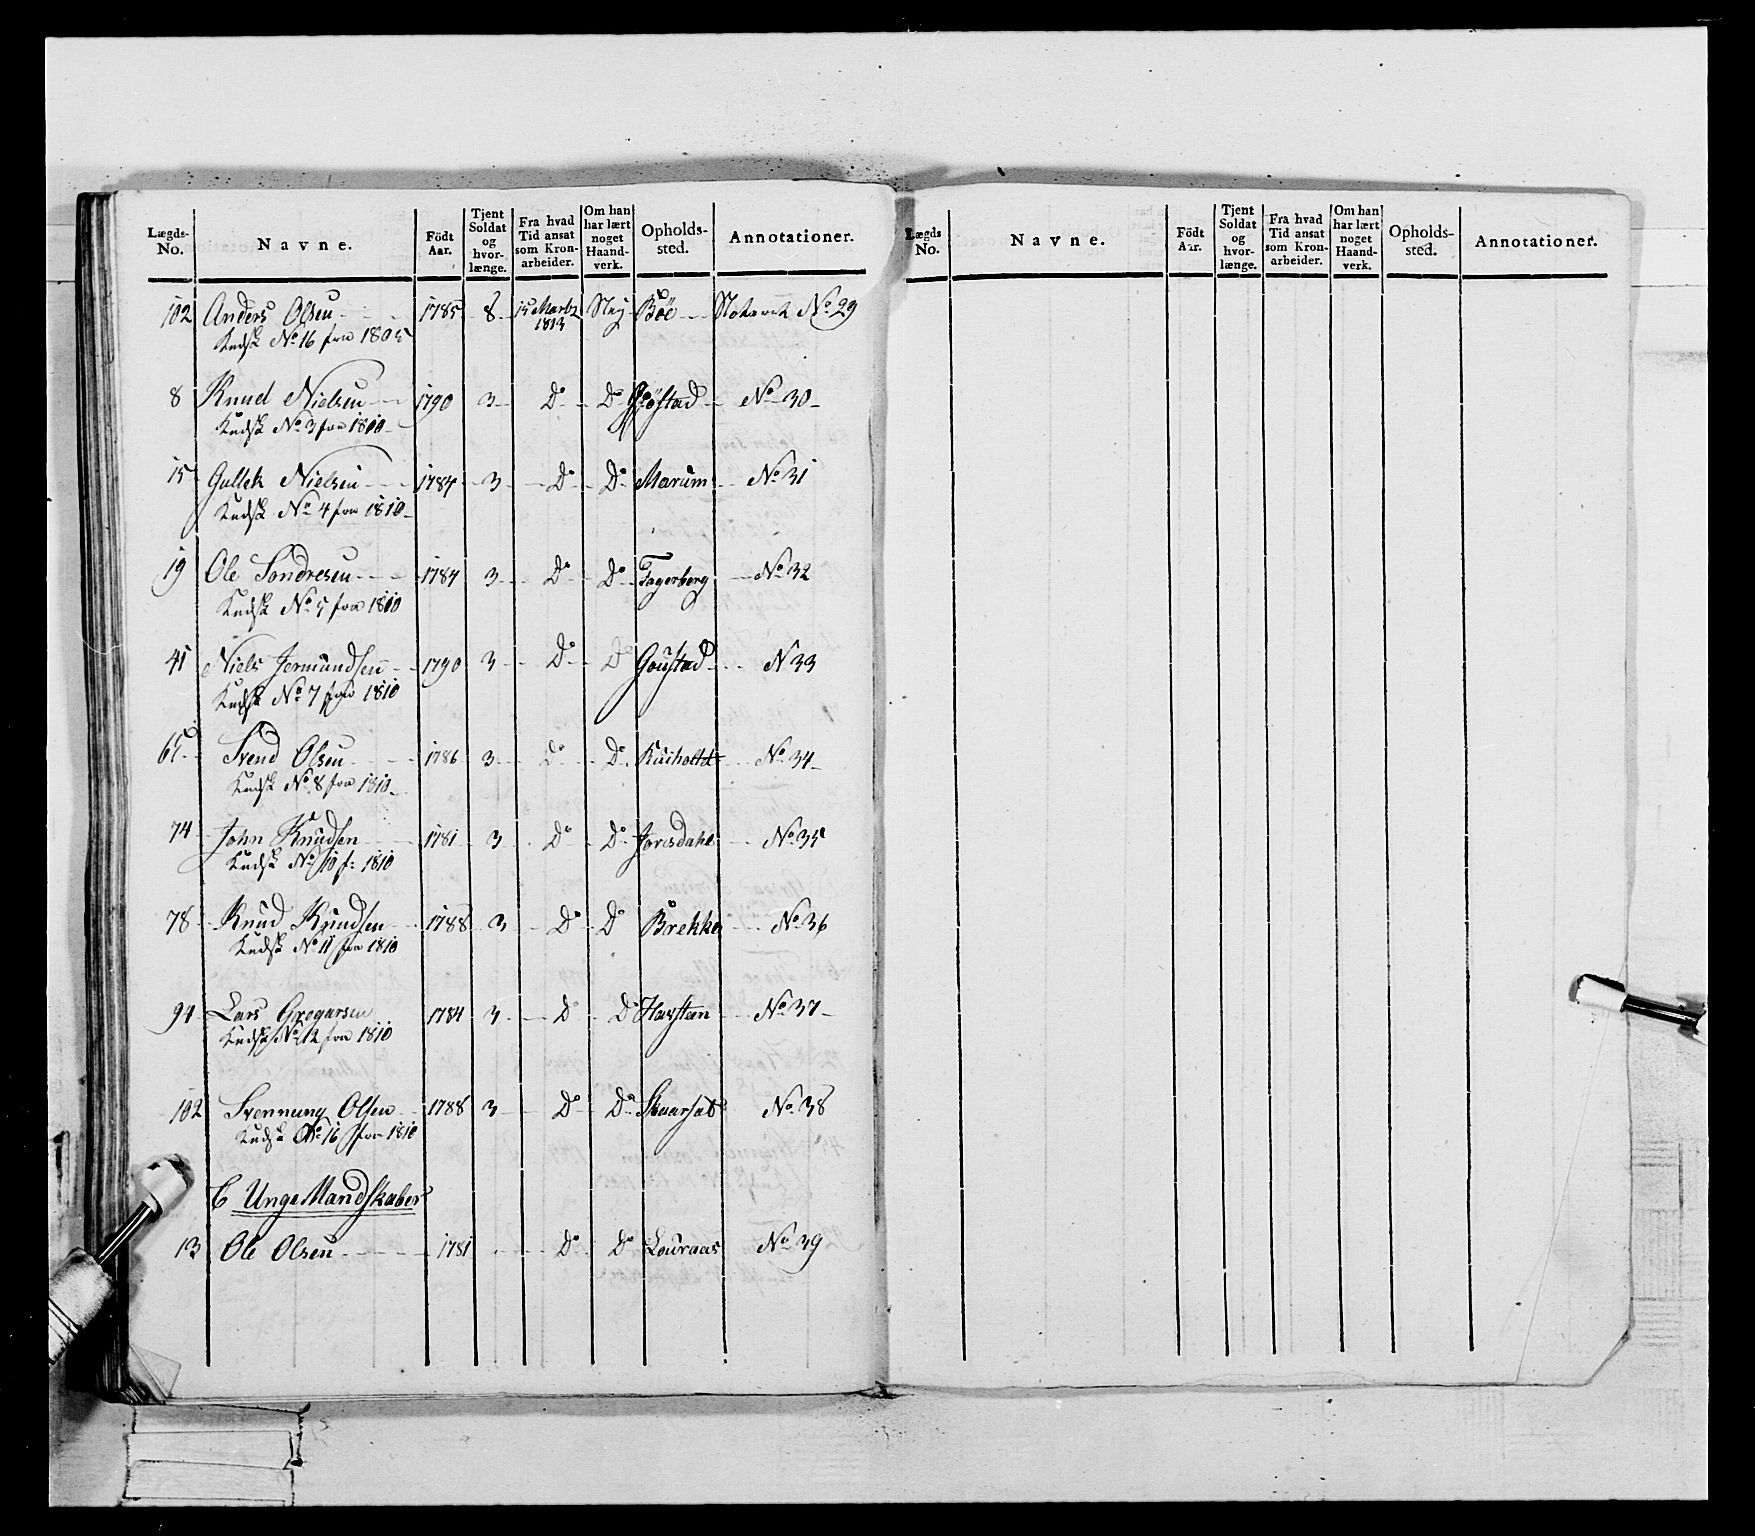 Lægds- No. Navne. Födt Aar. Tjent Soldat og hvor- længe. Fra hvad Tid ansat som Kron- arbeider. Om han har lært noget Haand- verk. Opholds- sted. Annotationer.
102 Anders Olsen 1785 8 15 Martz 1813 Ney Böe Notaret No 29
Kudsk No 16 fra 1805
8 Knud Nielsen 1790 3 Do Do No 30
Kudsk No 3 fra 1810
15 Gullek Nielsen 1784 3 Do Do Marum No 31
Kudsk No 4 fra 1810
19 Ole Sondresen 1784 3 Do Do Fagerberg No 32
Kudsk No 5 fra 1810
41 Niels Jermundsen 1790 3 Do Do Goustad N 33
Kudsk No 7 fra 1810
65 Svend Olsen 1786 3 Do Do No 34
Kudsk No 8 fra 1810
74 John Knudsen 1781 3 Do Do No 35
Kudsk No 10 f: 1810
78 Knud Knudsen 1788 3 Do Do Brekke No 36
Kudsk No 11 fra 1810
94 Lars Gregarsen 1784 3 Do Do No 37
Kudsk No 12 fra 1810
102 Svennung Olsen 1788 3 Do Do No 38
Kudsk No 16 fra 1810
C Unge Mandskaber
13 Ole Olsen 1781 Do Do Louraas No 39
Lægds No. Navne. Födt Aar. Tjent Soldat og hvor- længe. Fra hvad Tid ansat som Kron- arbeider. Om han har lært noget Haand- verk. Opholds- sted. Annotationer.